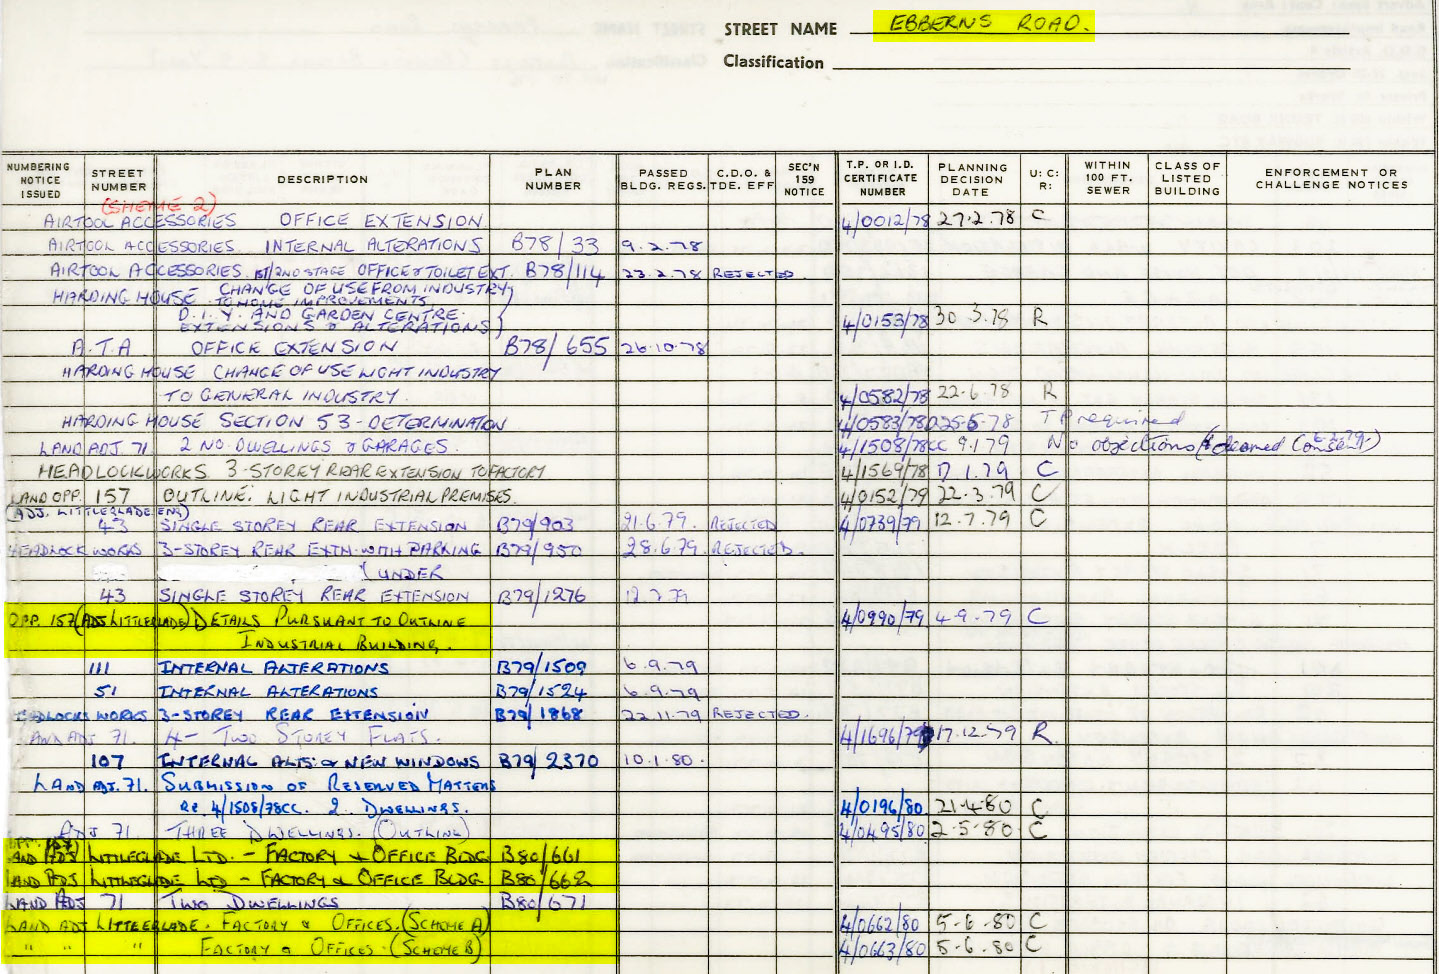 STREET NAME EBBERNS ROAD.
Classification
NUMBERING NOTICE ISSUED STREET NUMBER DESCRIPTION PLAN NUMBER PASSED BLDG. REGS. C.D.O. & TDE. EFF SEC'N 159 NOTICE T.P. OR I.D. CERTIFICATE NUMBER PLANNING DECISION DATE U: C: R: WITHIN 100 FT. SEWER CLASS OF LISTED BUILDING ENFORCEMENT OR CHALLENGE NOTICES
(SHEME 2)
AIRTOOL ACCESSORIES OFFICE EXTENSION. 4/0012/78 27.2.78 C
AIRTOOL ACCESSORIES. INTERNAL ALTERATIONS B78/33 9.2.78
AIRTOOL ACCESSORIES. 1ST/2ND STAGE OFFICE & TOILET EXT. B78/114 23.2.78 REJECTED.
HARDING HOUSE CHANGE OF USE FROM INDUSTRY
TO HOME IMPROVEMENTS,
D.I.Y. AND GARDEN CENTRE.
EXTENSIONS & ALTERATIONS) 4/0153/78 30.3.78 R
A.T.A OFFICE EXTENSION B78/655 26.10.78
HARDING HOUSE CHANGE OF USE LIGHT INDUSTRY
TO GENERAL INDUSTRY. 4/0582/78 22.6.78 R
HARDING HOUSE SECTION 53-DETERMINATION 4/0583/78D 25.5.78 T P required
LAND ADJ. 71 2 NO. DWELLINGS & GARAGES. 4/1508/78CC 9.1.79 No objections (& deemed Consent)
HEADLOCK WORKS 3-STOREY REAR EXTENSION TO FACTORY 4/1569/78 17.1.79 C
LAND OPP. 157 OUTLINE: LIGHT INDUSTRIAL PREMISES. 4/0152/79 22.3.79 C
(ADJ. LITTLEGLADE ENG)
43 SINGLE STOREY REAR EXTENSION B79/903 21.6.79. REJECTED 4/0739/79 12.7.79 C
HEADLOCK WORKS 3-STOREY REAR EXTN. WITH PARKING B79/950 28.6.79 REJECTED.
(UNDER
43 SINGLE STOREY REAR EXTENSION B79/1276 12.7.79
OPP. 157 (ADJ LITTLEGLADE) DETAILS PURSUANT TO OUTLINE 4/0990/79 4-9-79 C
INDUSTRIAL BUILDING.
111 INTERNAL ALTERATIONS B79/1509 6.9.79
51 INTERNAL ALTERATIONS B79/1524 6.9.79
HEADLOCKS WORKS 3-STOREY REAR EXTENSION B79/1868 22.11.79 REJECTED.
LAND ADJ 71. 4- TWO STOREY FLATS. 4/1696/79 17.12.79 R.
107 INTERNAL ALTS. & NEW WINDOWS B79/2370 10.1.80.
LAND ADJ. 71. SUBMISSION OF RESERVED MATTERS
RE. 4/1508/78CC. 2 DWELLINGS. 4/0196/80 21.4.80 C
ADJ 71 THREE DWELLINGS. (OUTLINE) 4/0495/80 2-5-80 C
OPP. 157)
LAND ADJ LITTLEGLADE LTD. - FACTORY & OFFICE BLDG B80/661
LAND ADJ LITTLEGLADE LTD - FACTORY & OFFICE BLDG B80/662
LAND ADJ 71 TWO DWELLINGS B80/671
LAND ADJ LITTLEGLADE. FACTORY & OFFICES. (SCHEME A) 4/0662/80 5-6.80 C
" " " FACTORY & OFFICES. (SCHEME B) 4/0663/80 5-6.80 C